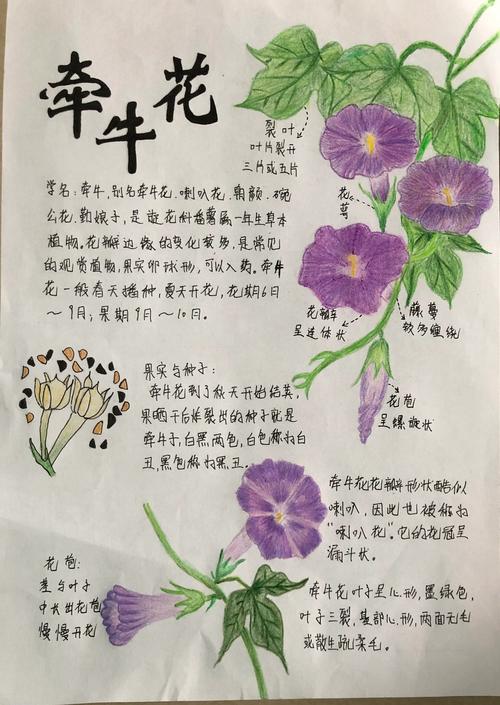 牵牛花
裂叶
叶片裂开
三片或五片
学名:牵牛,别名牵牛花.喇叭花.朝颜.碗
公花,勤娘子,是旋花科番薯属一年生草本
植物,花瓣边缘的变化较多,是常见
的观赏植物,果实卵球形,可以入药。牵牛
花一般春天播种,夏天开花,花期6月
～9月;果期9月～10月。
花萼
花瓣
呈连体状
藤蔓
软多缠绕
花苞
呈螺旋状
果实与种子:
牵牛花到了秋天开始结果,
果晒干后炸裂出的种子就是
牵牛子,白黑两色,白色称为白
丑,黑色称为黑丑。
牵牛花花瓣形状酷似
喇叭,因此也被称为
"喇叭花"。它的花冠呈
漏斗状。
花苞:
茎与叶子
中长出花苞
慢慢开花
牵牛花叶子呈心形,墨绿色,
叶子三裂,基部心形,两面无毛
或散生疏柔毛。